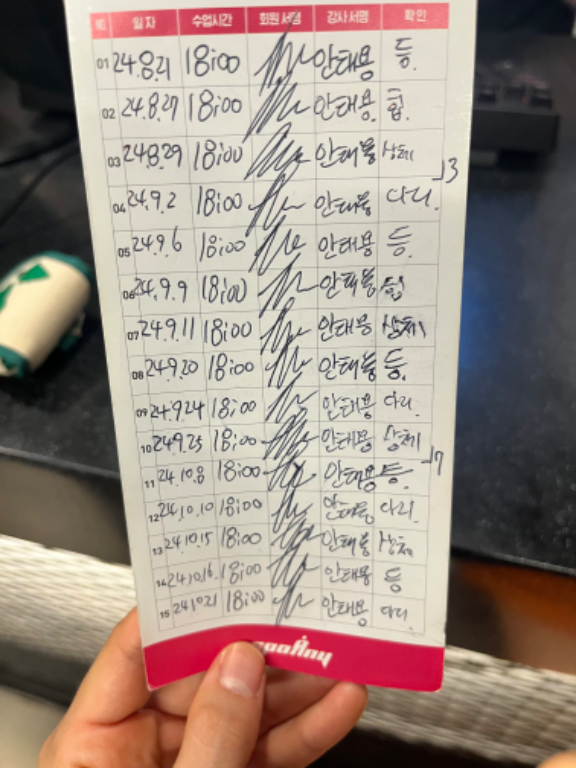 NO. 일 자 수업시간 회원 서명 강사 서명 확 인
01 24.8.21 18:00 안태용 등.
02 24.8.27 18:00 안태용. 힙.
03 24.8.29 18:00 안태용 상체
3
04 24.9.2 18:00 안태용 다리.
05 24.9.6 18:00 안태용 등.
06 24.9.9 18:00 안태용 힙
07 24.9.11 18:00 안태용 상체
08 24.9.20 18:00 안태용 등.
09 24.9.24 18:00 안태용 다리.
10 24.9.25 18:00 안태용 상체
7
11 24.10.8 18:00 안태용 등.
12 24.10.10 18:00 안태용 다리.
13 24.10.15 18:00 안태용 상체
14 24.10.16. 18:00 안태용 등
15 24.10.21 18:00 안태용 다리.